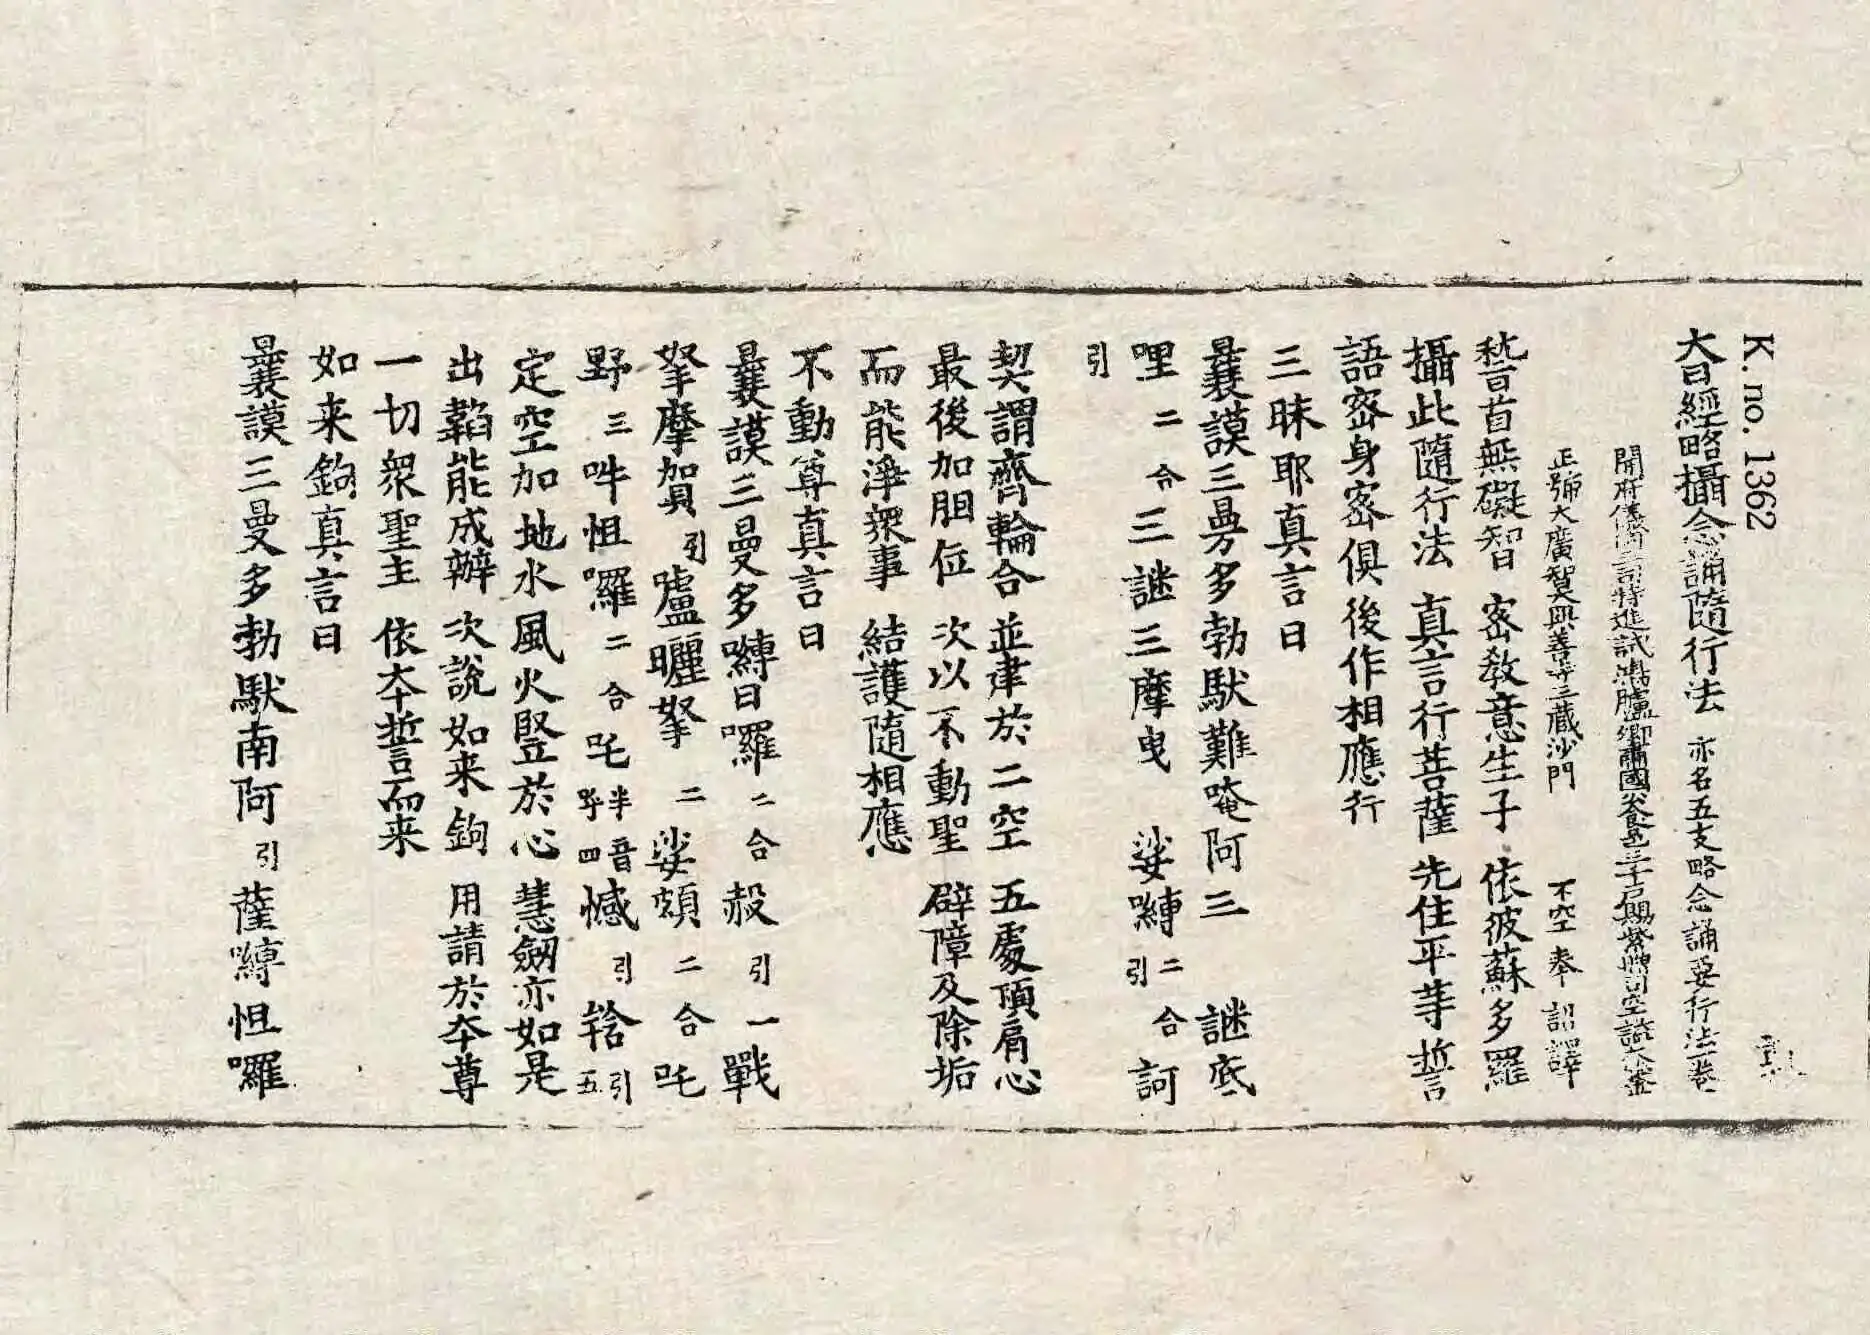 K. no. 1362
大日經略攝念誦隨行法 亦名五支略念誦要行法一卷
開府儀同三司特進試鴻臚卿肅國公食邑三千戶賜紫贈司空謚大鑒
正號大廣智大興善寺三藏沙門 不空奉 詔譯
稽首無礙智 密敎意生子 依彼蘇多羅
攝此隨行法 真言行菩薩 先住平等誓
語密身密俱 後作相應行
三昧耶真言曰
曩謨三曼多勃馱難唵阿三 謎底
哩 二合 三謎三摩曳 娑嚩 二合引 訶
引
契謂齊輪合 並建於二空 五處頂肩心
最後加胆位 次以不動聖 辟障及除垢
而能淨衆事 結護隨相應
不動尊真言曰
曩謨三曼多嚩日囉 二合 赧 引 一戰
拏摩賀 引 嚧曬拏 二 娑頗 二合 吒
野 三 吽怛囉 二合 吒 半音呼四 憾 引 𤚥 引五
定空加地水 風火竪於心 慧劔亦如是
出韜能成辦 次說如来鉤 用請於夲尊
一切衆聖主 依夲誓而来
如来鉤真言曰
曩謨三曼多勃馱南阿 引 薩嚩怛囉